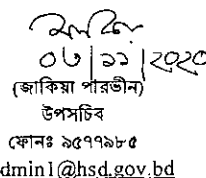 ০৬/১১/২০২০
(জাকিয়া পারভীন)
উপসচিব
ফোনঃ ৯৫৭৭৯৮৫
dmin1@hsd.gov.bd